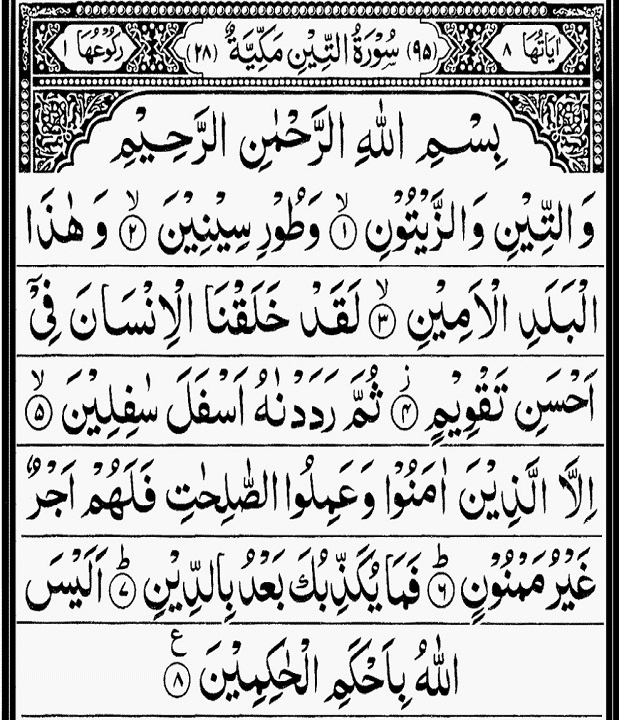 اٰيَاتُهَا ٨ (٩٥) سُوْرَةُ التِّيْنِ مَكِّيَّةٌ (٢٨) رُكُوْعُهَا ١
بِسْمِ اللّٰهِ الرَّحْمٰنِ الرَّحِيْمِ
وَالتِّيْنِ وَالزَّيْتُوْنِ ۙ‏﴿١﴾ وَطُوْرِ سِيْنِيْنَ ۙ‏﴿٢﴾ وَهٰذَا
الْبَلَدِ الْاَمِيْنِ ۙ‏﴿٣﴾ لَقَدْ خَلَقْنَا الْاِنْسَانَ فِىْۤ
اَحْسَنِ تَقْوِيْمٍ ز‏﴿٤﴾ ثُمَّ رَدَدْنٰهُ اَسْفَلَ سٰفِلِيْنَ ۙ‏﴿٥﴾
اِلَّا الَّذِيْنَ اٰمَنُوْا وَعَمِلُوا الصّٰلِحٰتِ فَلَهُمْ اَجْرٌ
غَيْرُ مَمْنُوْنٍ ؕ‏﴿٦﴾ فَمَا يُكَذِّبُكَ بَعْدُ بِالدِّيْنِ ؕ‏﴿٧﴾ اَلَيْسَ
اللّٰهُ بِاَحْكَمِ الْحٰكِمِيْنَ ع‏﴿٨﴾